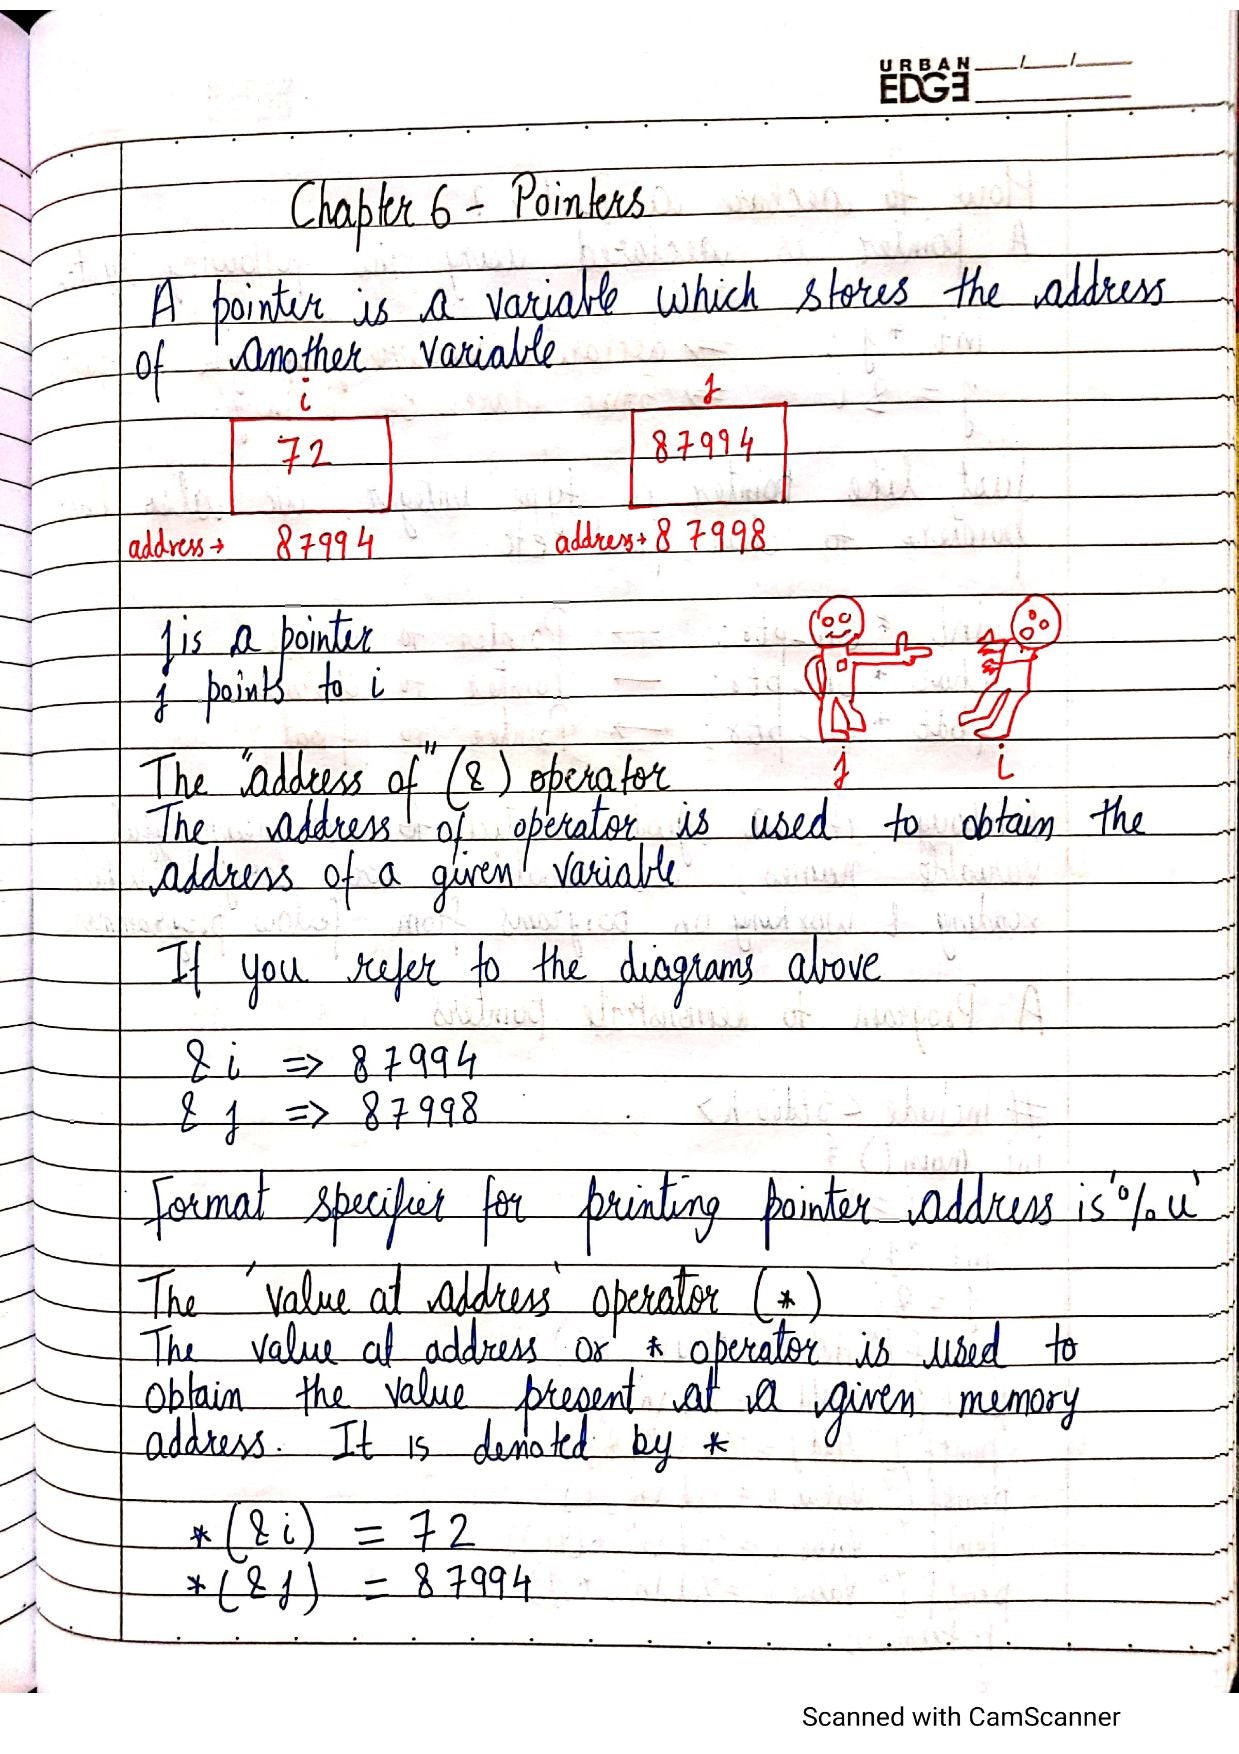 URBAN
EDGE
Chapter 6 - Pointers
A pointer is a variable which stores the address
of another variable
i j
72 87994
address → 87994 address → 87998
j is a pointer
j points to i
j i
The "address of" (&) operator
The address of operator is used to obtain the
address of a given variable
If you refer to the diagrams above
& i => 87994
& j => 87998
Format specifier for printing pointer address is '%u'
The 'value at address' operator (*)
The value at address or * operator is used to
obtain the value present at a given memory
address. It is denoted by *
*(& i) = 72
*(& j) = 87994
Scanned with CamScanner